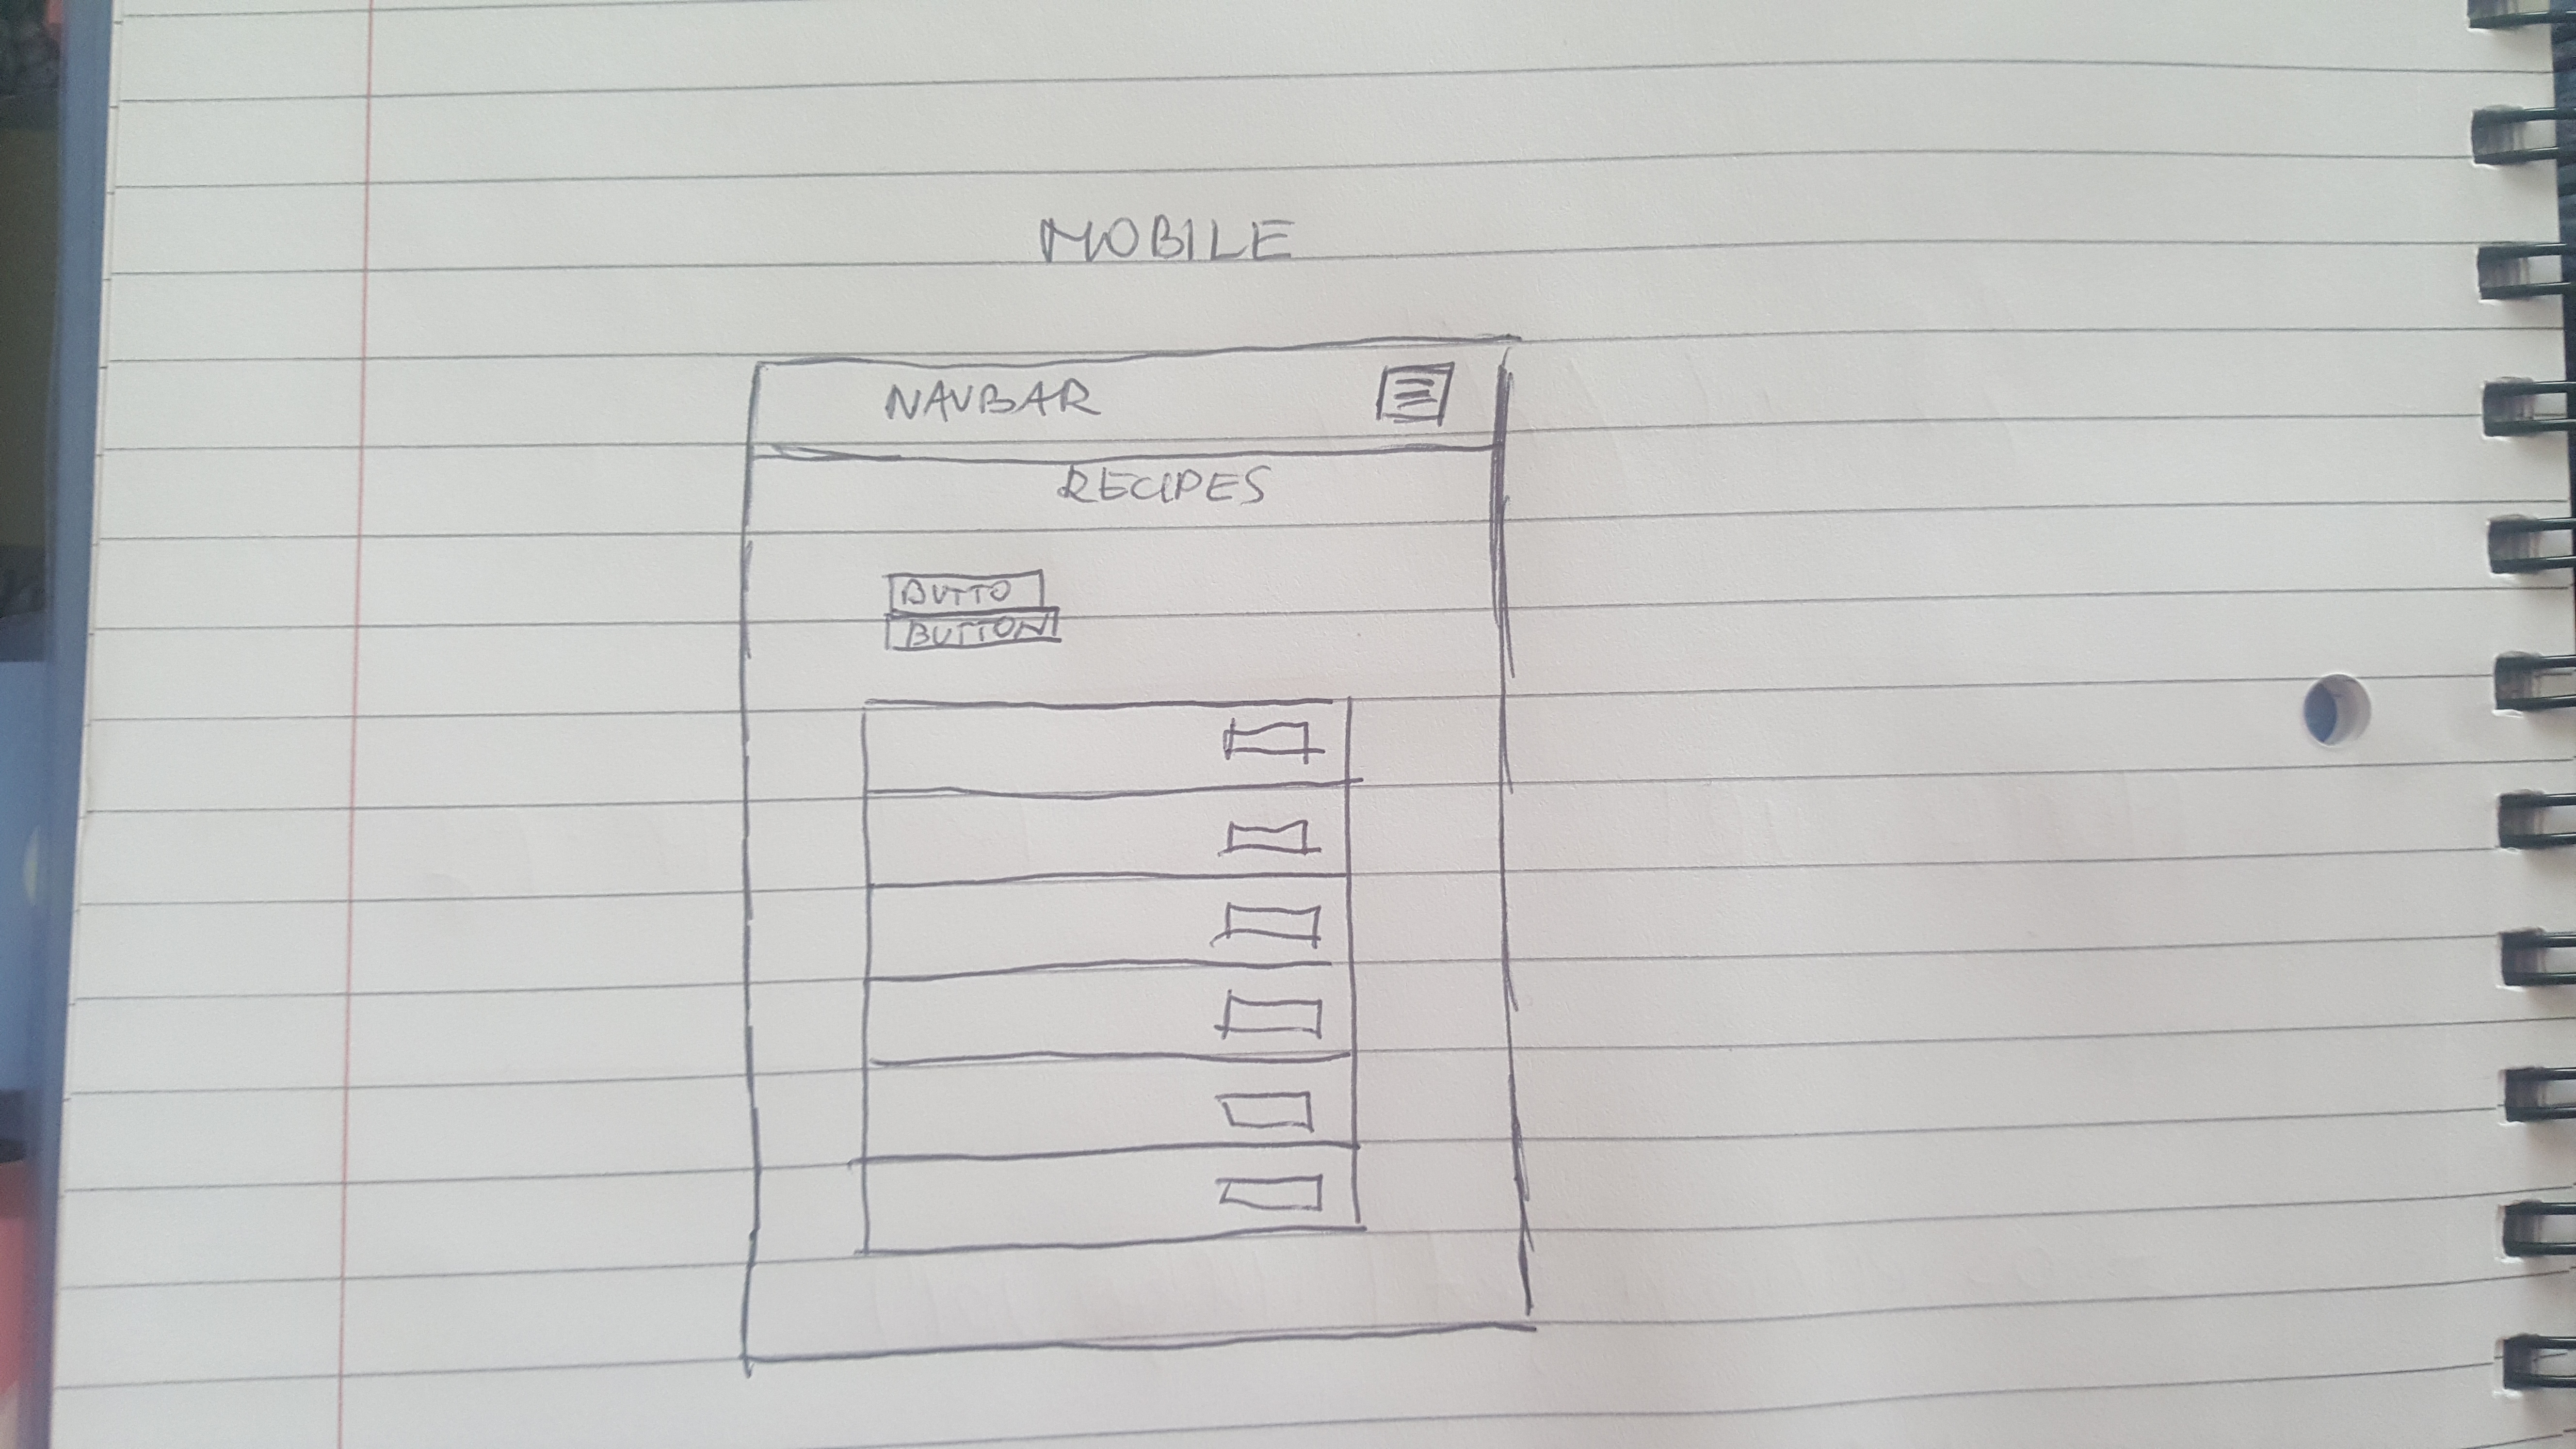 MOBILE
NAVBAR
RECIPES
BUTTO
BUTTON